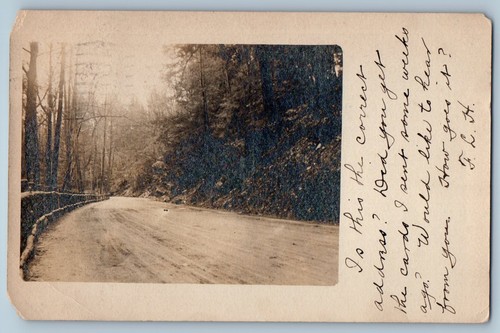 Is this the correct
address? Did you get
the cards I sent some weeks
ago? Would like to hear
from you. How goes it?
F. L. H.